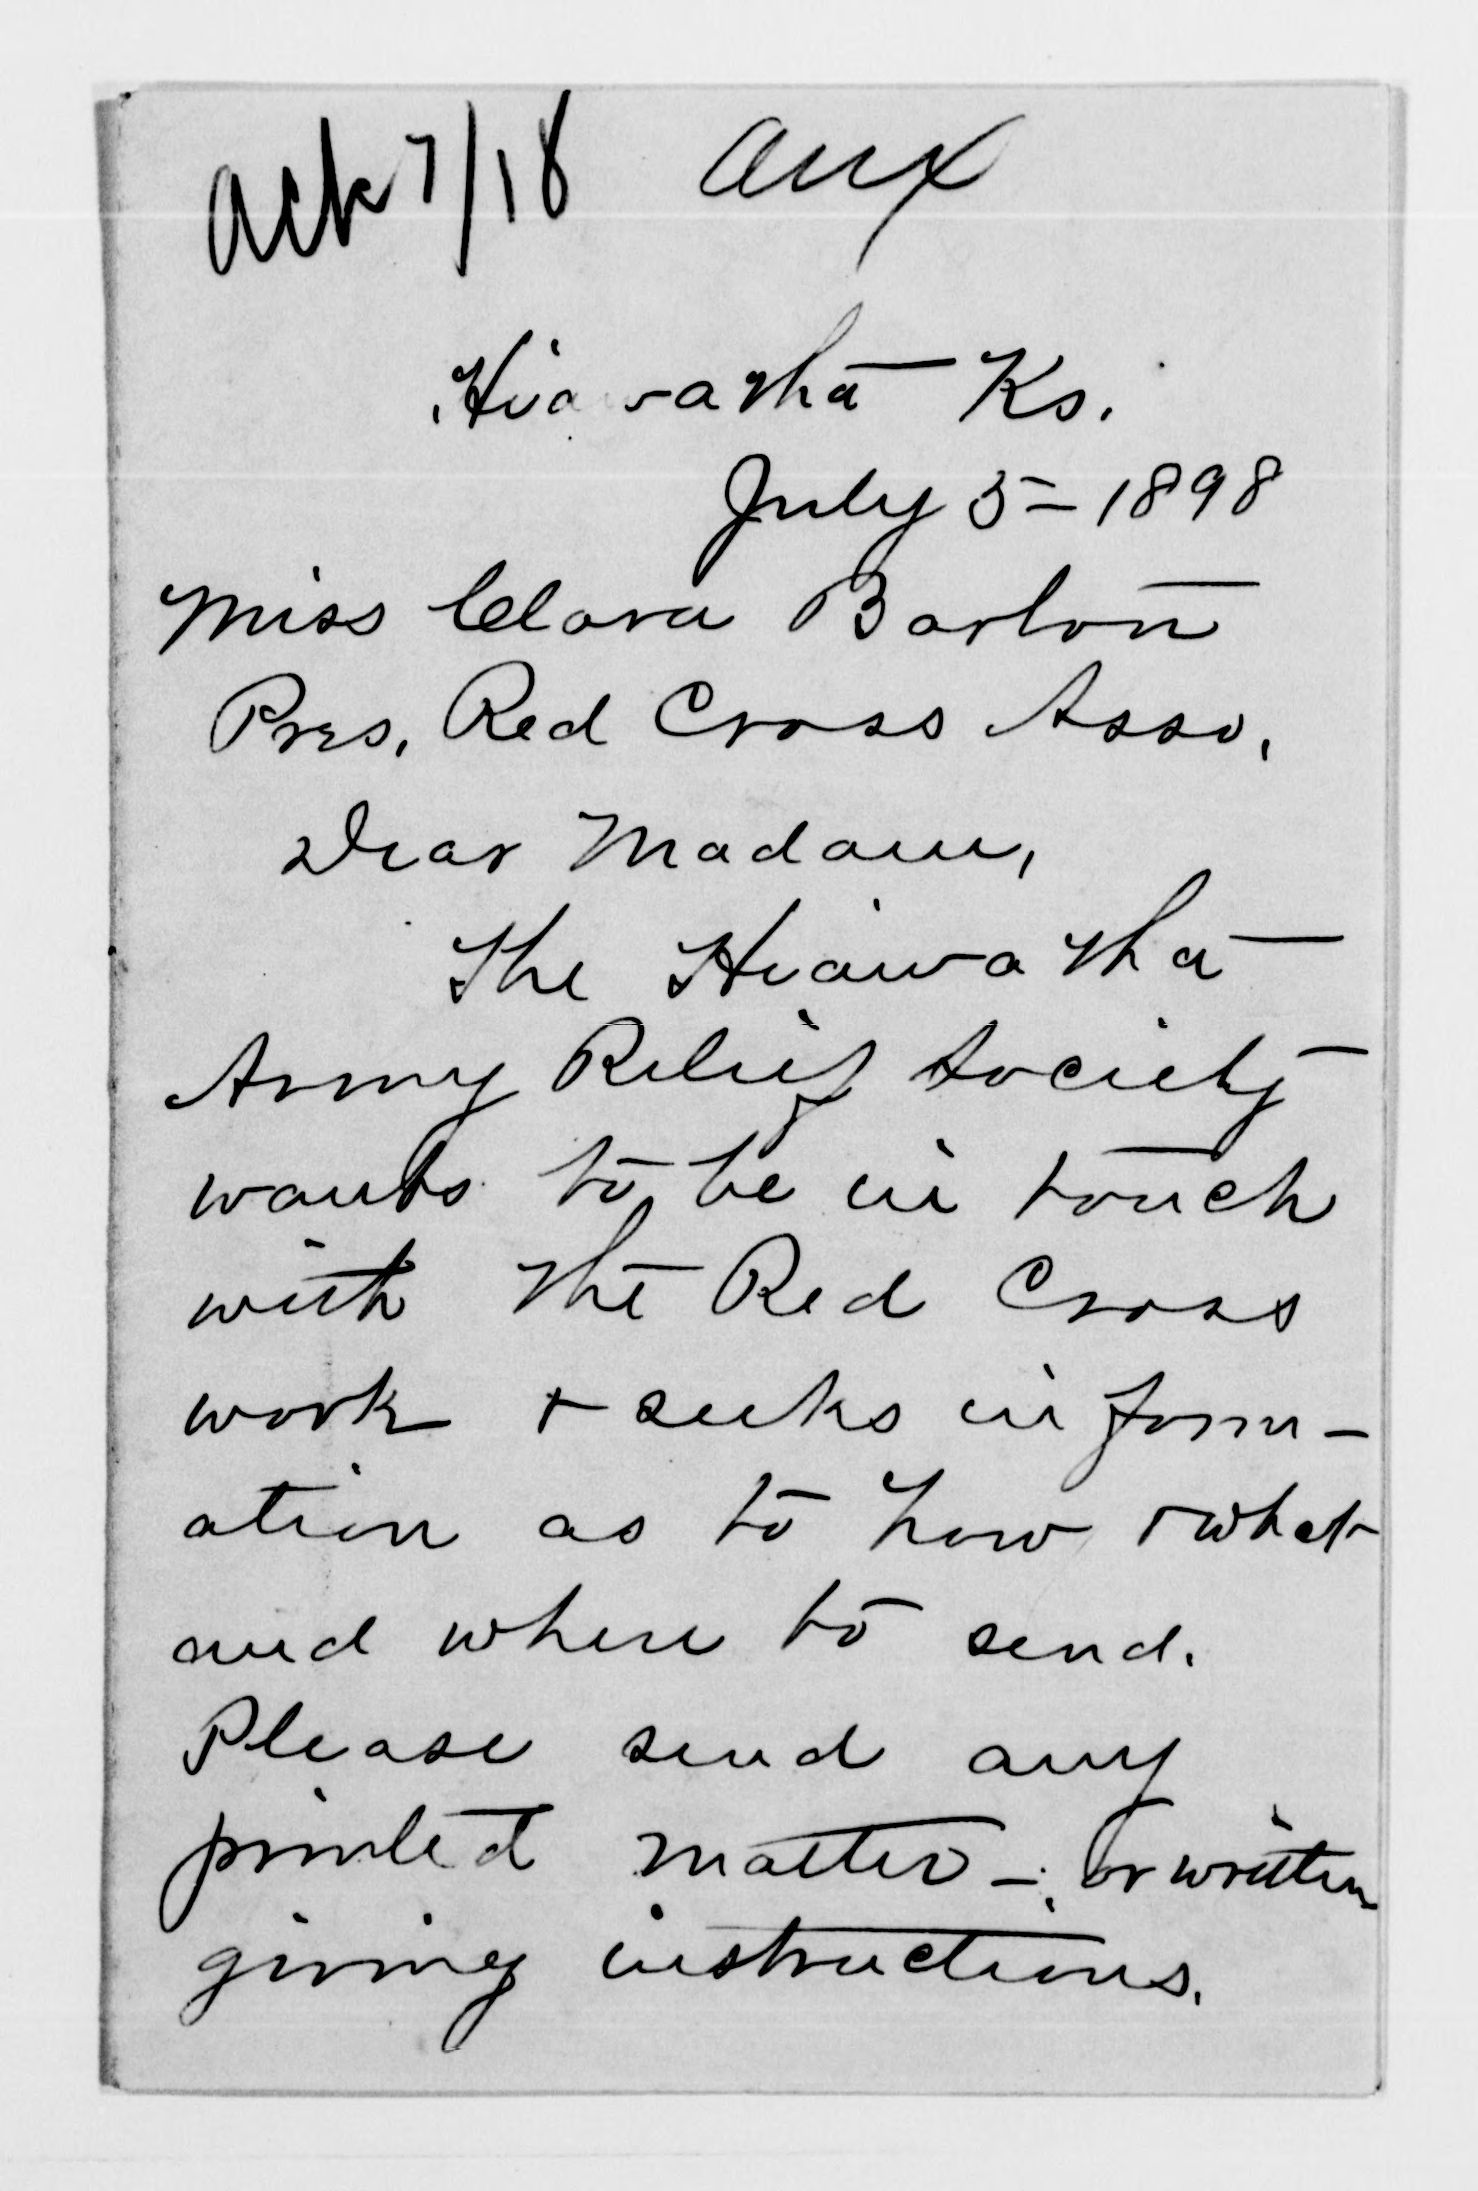 ack 7/18 aux
Hiawatha Ks.
July 5 - 1898
Miss Clara Barton
Pres. Red Cross Asso.
Dear Madam,
The Hiawatha
Army Relief Society
wants to be in touch
with the Red Cross
work & seeks inform-
ation as to how & what
and where to send.
Please send any
printed matter - or written
giving instructions.